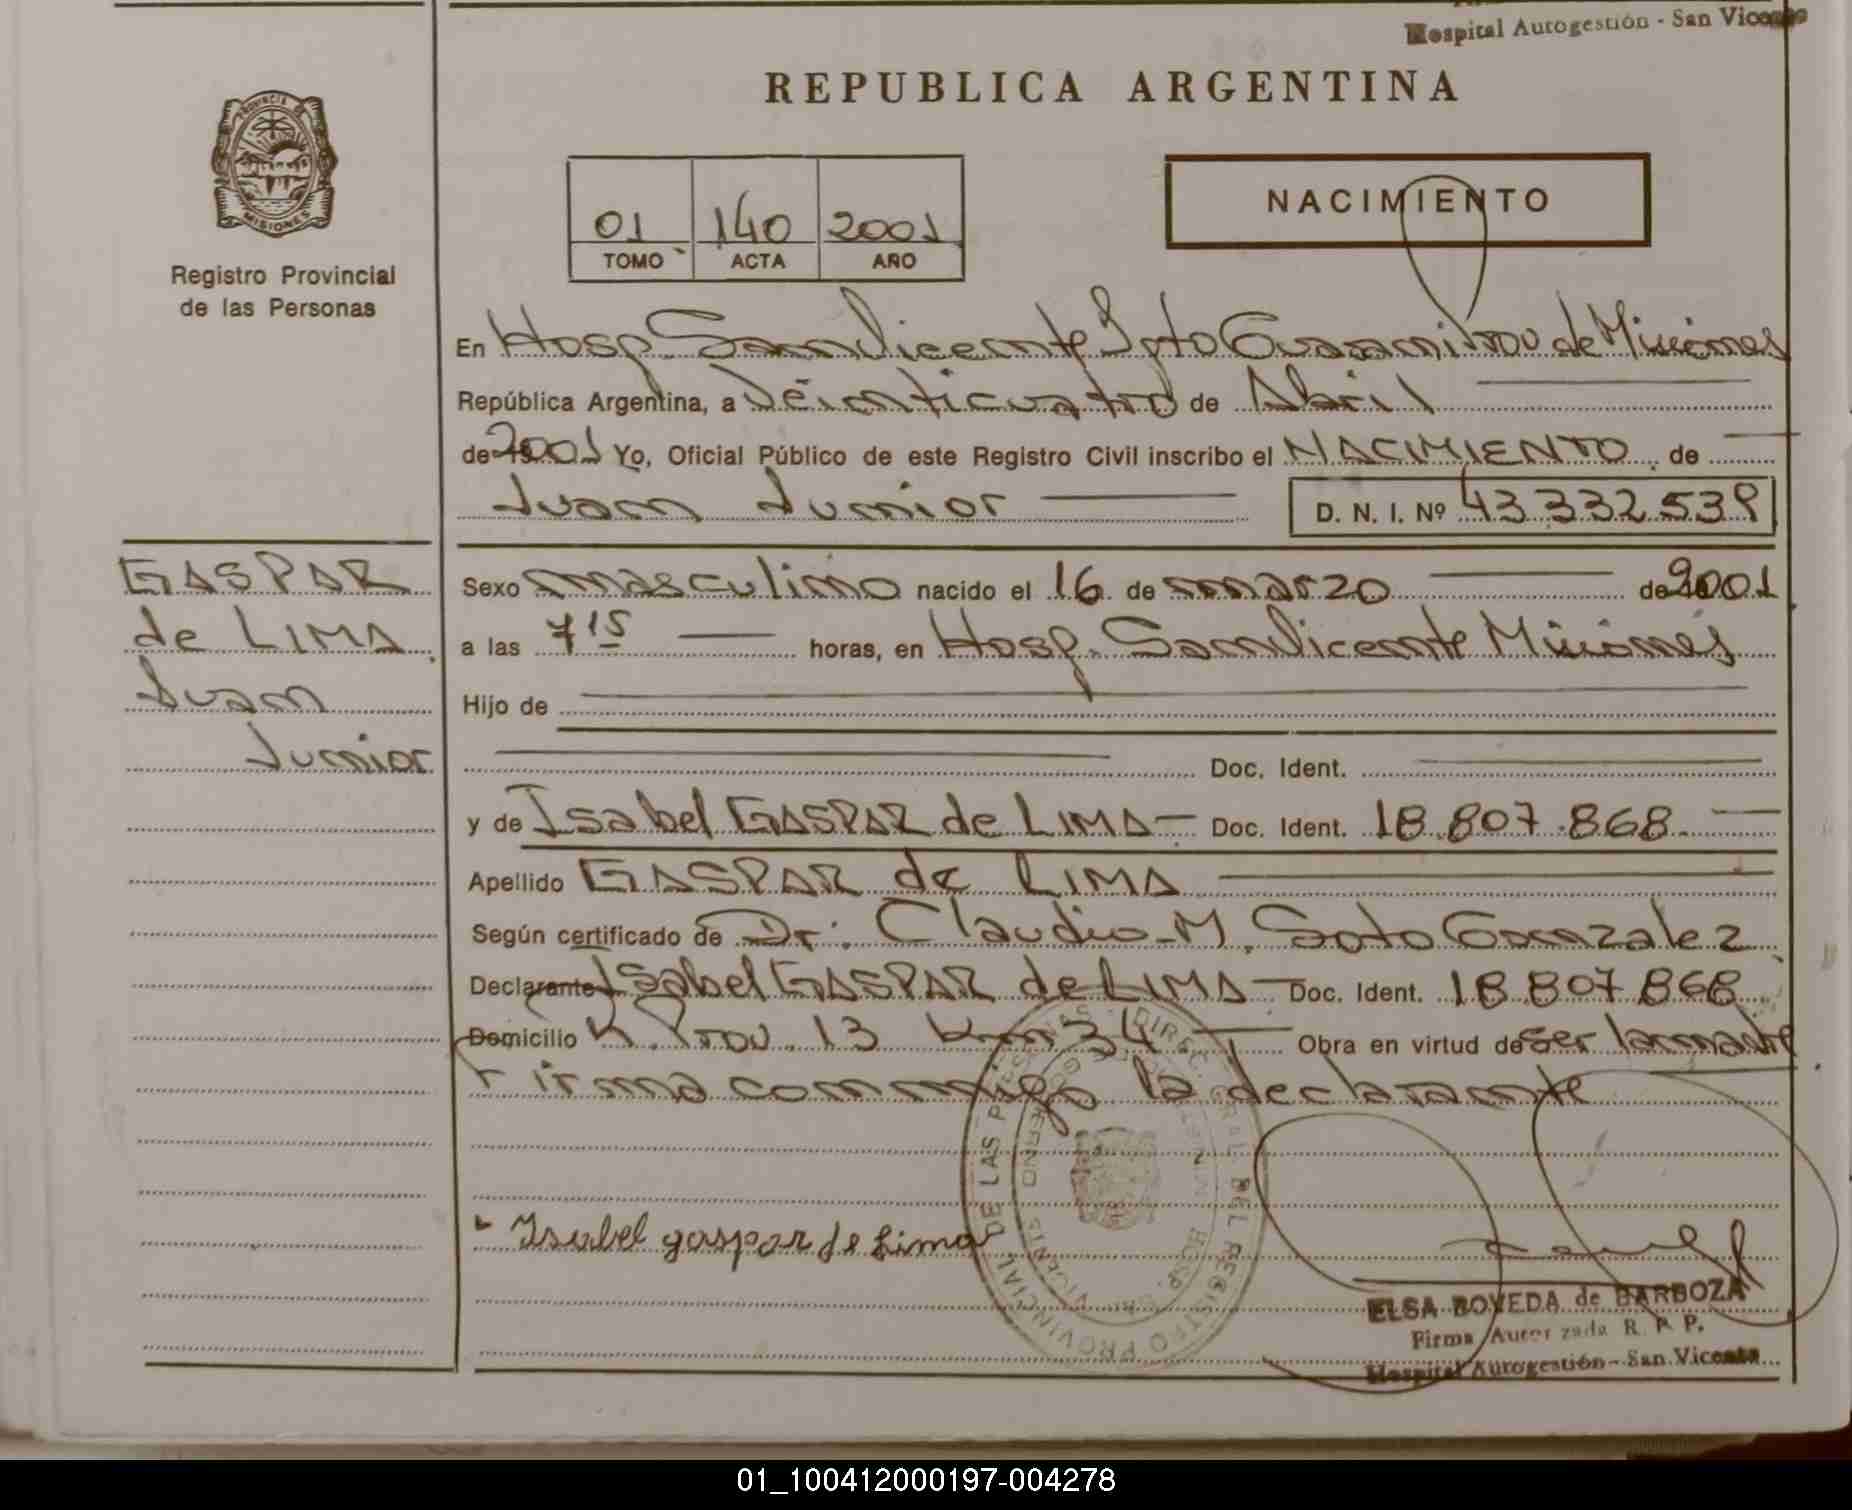 Hospital Autogestión - San Vicente
REPUBLICA ARGENTINA
PROVINCIA DE
MISIONES
Registro Provincial
de las Personas
01 140 2001
TOMO ACTA AÑO
NACIMIENTO
En Hosp. San Vicente Dpto Guarani Prov de Misiones
República Argentina, a Veinticuatro de Abril
de 2001 Yo, Oficial Público de este Registro Civil inscribo el NACIMIENTO de
Juan Junior D. N. I. Nº 43.332.539
GASPAR
de LIMA
Juan
Junior
Sexo masculino nacido el 16 de marzo de 2001
a las 7 15 horas, en Hosp. San Vicente Misiones
Hijo de
Doc. Ident.
y de Isabel GASPAR de LIMA - Doc. Ident. 18.807.868
Apellido GASPAR de LIMA
Según certificado de Dr. Claudio M. Soto Gonzalez
Declarante Isabel GASPAR de LIMA - Doc. Ident. 18.807.868
Domicilio R. Prov. 13 Km 34 - Obra en virtud de ser la madre
Firma conmigo la declarante
DIREC. GRAL. DEL REGISTRO PROVINCIAL DE LAS PERSONAS
Isabel gaspar de Lima
ELSA BOVEDA de BARBOZA
Firma Autorizada R. P. P.
Hospital Autogestión - San Vicente
01_100412000197-004278